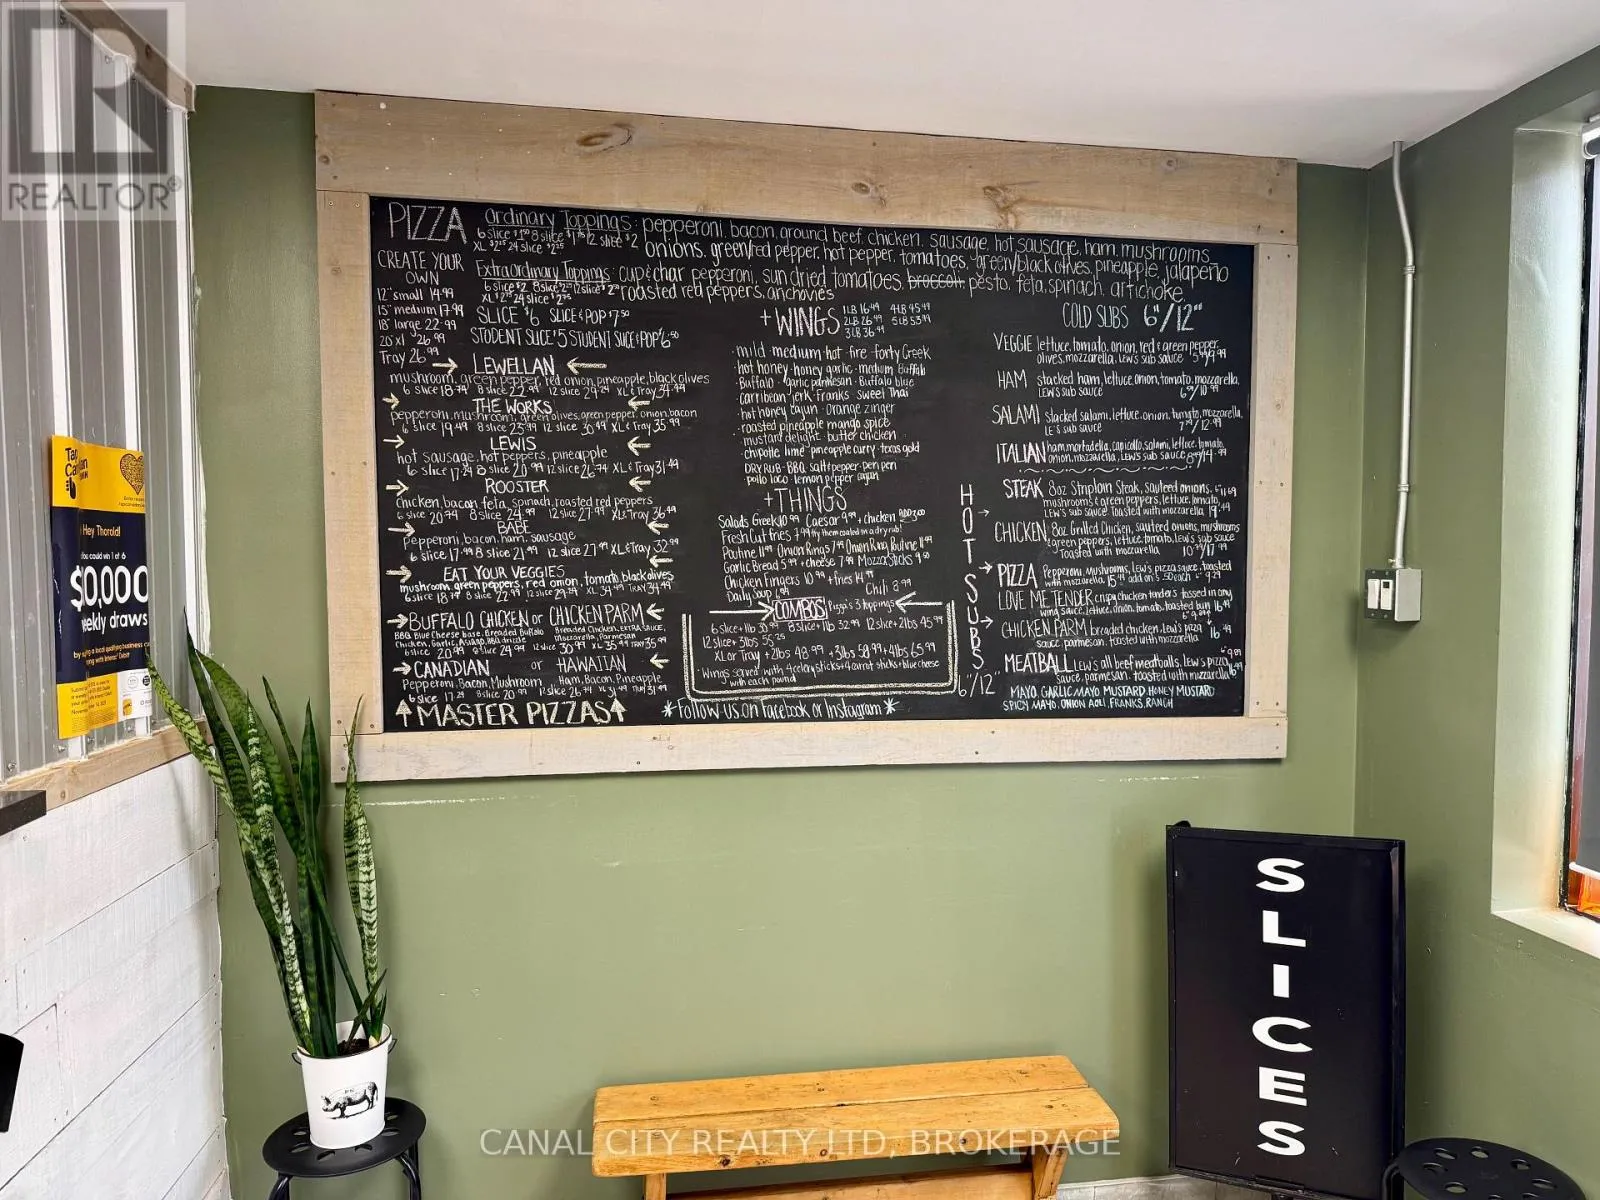 REALTOR®
PIZZA
Ordinary Toppings: pepperoni, bacon, ground beef, chicken, sausage, hot sausage, ham, mushrooms,
6 slice $1.50 8 slice $1.75 12 slice $2
XL $2.25 24 slice $2.25
onions, green/red pepper, hot pepper, tomatoes, green/black olives, pineapple, jalapeño
Extraordinary Toppings: cup & char pepperoni, sun dried tomatoes, broccoli, pesto, feta, spinach, artichoke,
6 slice $2
roasted red peppers, anchovies
CREATE YOUR
OWN
12" small 14.99
15" medium 17.99
18" large 22.99
20 xl 26.99
Tray 26.99
SLICE $6 SLICE & POP $7.50
STUDENT SLICE $5 STUDENT SLICE & POP $6.50
LEWELLAN
mushroom, green pepper, red onion, pineapple, black olives
6 slice 18.74 8 slice 22.99 12 slice 29.24 XL & Tray 34.99
THE WORKS
pepperoni, mushroom, green olives, green pepper, onion, bacon
6 slice 19.49 8 slice 23.99 12 slice 30.49 XL & Tray 35.99
LEWIS
hot sausage, hot peppers, pineapple
6 slice 17.24 8 slice 20.99 12 slice 26.74 XL & Tray 31.49
ROOSTER
chicken, bacon, feta, spinach, roasted red peppers
6 slice 20.74 8 slice 24.99 12 slice 27.99 XL & Tray 36.49
BABE
Pepperoni, bacon, ham, sausage
6 slice 17.99 8 slice 21.99 12 slice 27.99 XL & Tray 32.99
EAT YOUR VEGGIES
mushrooms, green peppers, red onion, tomato, black olives
6 slice 18.74 8 slice 22.99 12 slice 29.24 XL 34.99 Tray 34.99
BUFFALO CHICKEN or CHICKEN PARM
BBQ, Blue Cheese base, Breaded Buffalo
Chicken, Garlic, Asiago, BBQ drizzle
Breaded Chicken, EXTRA SAUCE,
Mozzarella, Parmesan
6 slice 20.99 8 slice 24.99 12 slice 30.99 XL 35.99 Tray 35.99
CANADIAN or HAWAIIAN
Pepperoni, Bacon, Mushroom Ham, Bacon, Pineapple
6 slice 17.24 8 slice 20.99 12 slice 26.74 XL 31.49 Tray 31.49
MASTER PIZZAS
+ WINGS
1LB 16.49 4LB 45.49
2LB 26.49 5LB 53.99
3LB 36.49
mild · medium · hot · fire · forty Greek
hot honey · honey garlic · medium Buffalo
Buffalo · garlic parmesan · Buffalo blue
Carribean jerk · Franks · sweet Thai
hot honey cajun · orange zinger
roasted pineapple mango spice
mustard delight · butter chicken
chipotle lime · pineapple curry · texas gold
DRY RUB · BBQ · salt & pepper · peri peri
pollo loco · lemon pepper · cajun
+ THINGS
Salads Greek 10.99 Caesar 9.99 + chicken ADD 3.00
Fresh Cut fries 7.99 try them coated in a dry rub!
Poutine 11.99 Onion Rings 7.99 Onion Ring Poutine 11.99
Garlic Bread 5.99 + cheese 7.99 Mozza Sticks 9.50
Chicken Fingers 10.99 + fries 14.99
Daily Soup 6.99 Chili 8.99
COMBOS Pizza's 3 toppings
6 slice + 1lb 30.99 8 slice + 1lb 32.99 12 slice + 2lbs 45.99
12 slice + 3lbs 55.25
XL or Tray + 2lbs 48.99 + 3lbs 58.99 + 4lbs 65.99
Wings served with 4 celery sticks + 4 carrot sticks + blue cheese
with each pound
*Follow us on Facebook or Instagram*
COLD SUBS 6"/12"
VEGGIE lettuce, tomato, onion, red & green pepper,
olives, mozzarella, LEW'S sub sauce
HAM stacked ham, lettuce, onion, tomato, mozzarella,
LEW'S sub sauce 6.99/10.99
SALAMI stacked salami, lettuce, onion, tomato, mozzarella,
LEW'S sub sauce 7.99/12.99
ITALIAN ham, mortadella, capicollo, salami, lettuce, tomato,
onion, mozzarella, LEW'S sub sauce 8.99/14.99
HOT SUBS 6"/12"
STEAK 8oz Striploin Steak, sauteed onions,
mushrooms & green peppers, lettuce, tomato,
LEW'S sub sauce. Toasted with mozzarella 19.49
CHICKEN 8oz Grilled Chicken, sauteed onions, mushrooms
& green peppers, lettuce, tomato, LEW'S sub sauce
Toasted with mozzarella 10.99/17.99
PIZZA Pepperoni, Mushrooms, Lew's pizza sauce, toasted
with mozzarella 15.49 add on's .50 each 9.29
LOVE ME TENDER crispy chicken tenders tossed in any
wing sauce, lettuce, onion, tomato, toasted bun 16.49
CHICKEN PARM breaded chicken, Lew's pizza
sauce, parmesan, toasted with mozzarella 16.49
MEATBALL LEW'S all beef meatballs, Lew's pizza
sauce, parmesan, toasted with mozzarella
MAYO, GARLIC MAYO, MUSTARD, HONEY MUSTARD
SPICY MAYO, ONION AOLI, FRANKS, RANCH
Hey Thorold!
you could win 1 of 6
$10,000
weekly draws
SLICES
CANAL CITY REALTY LTD, BROKERAGE